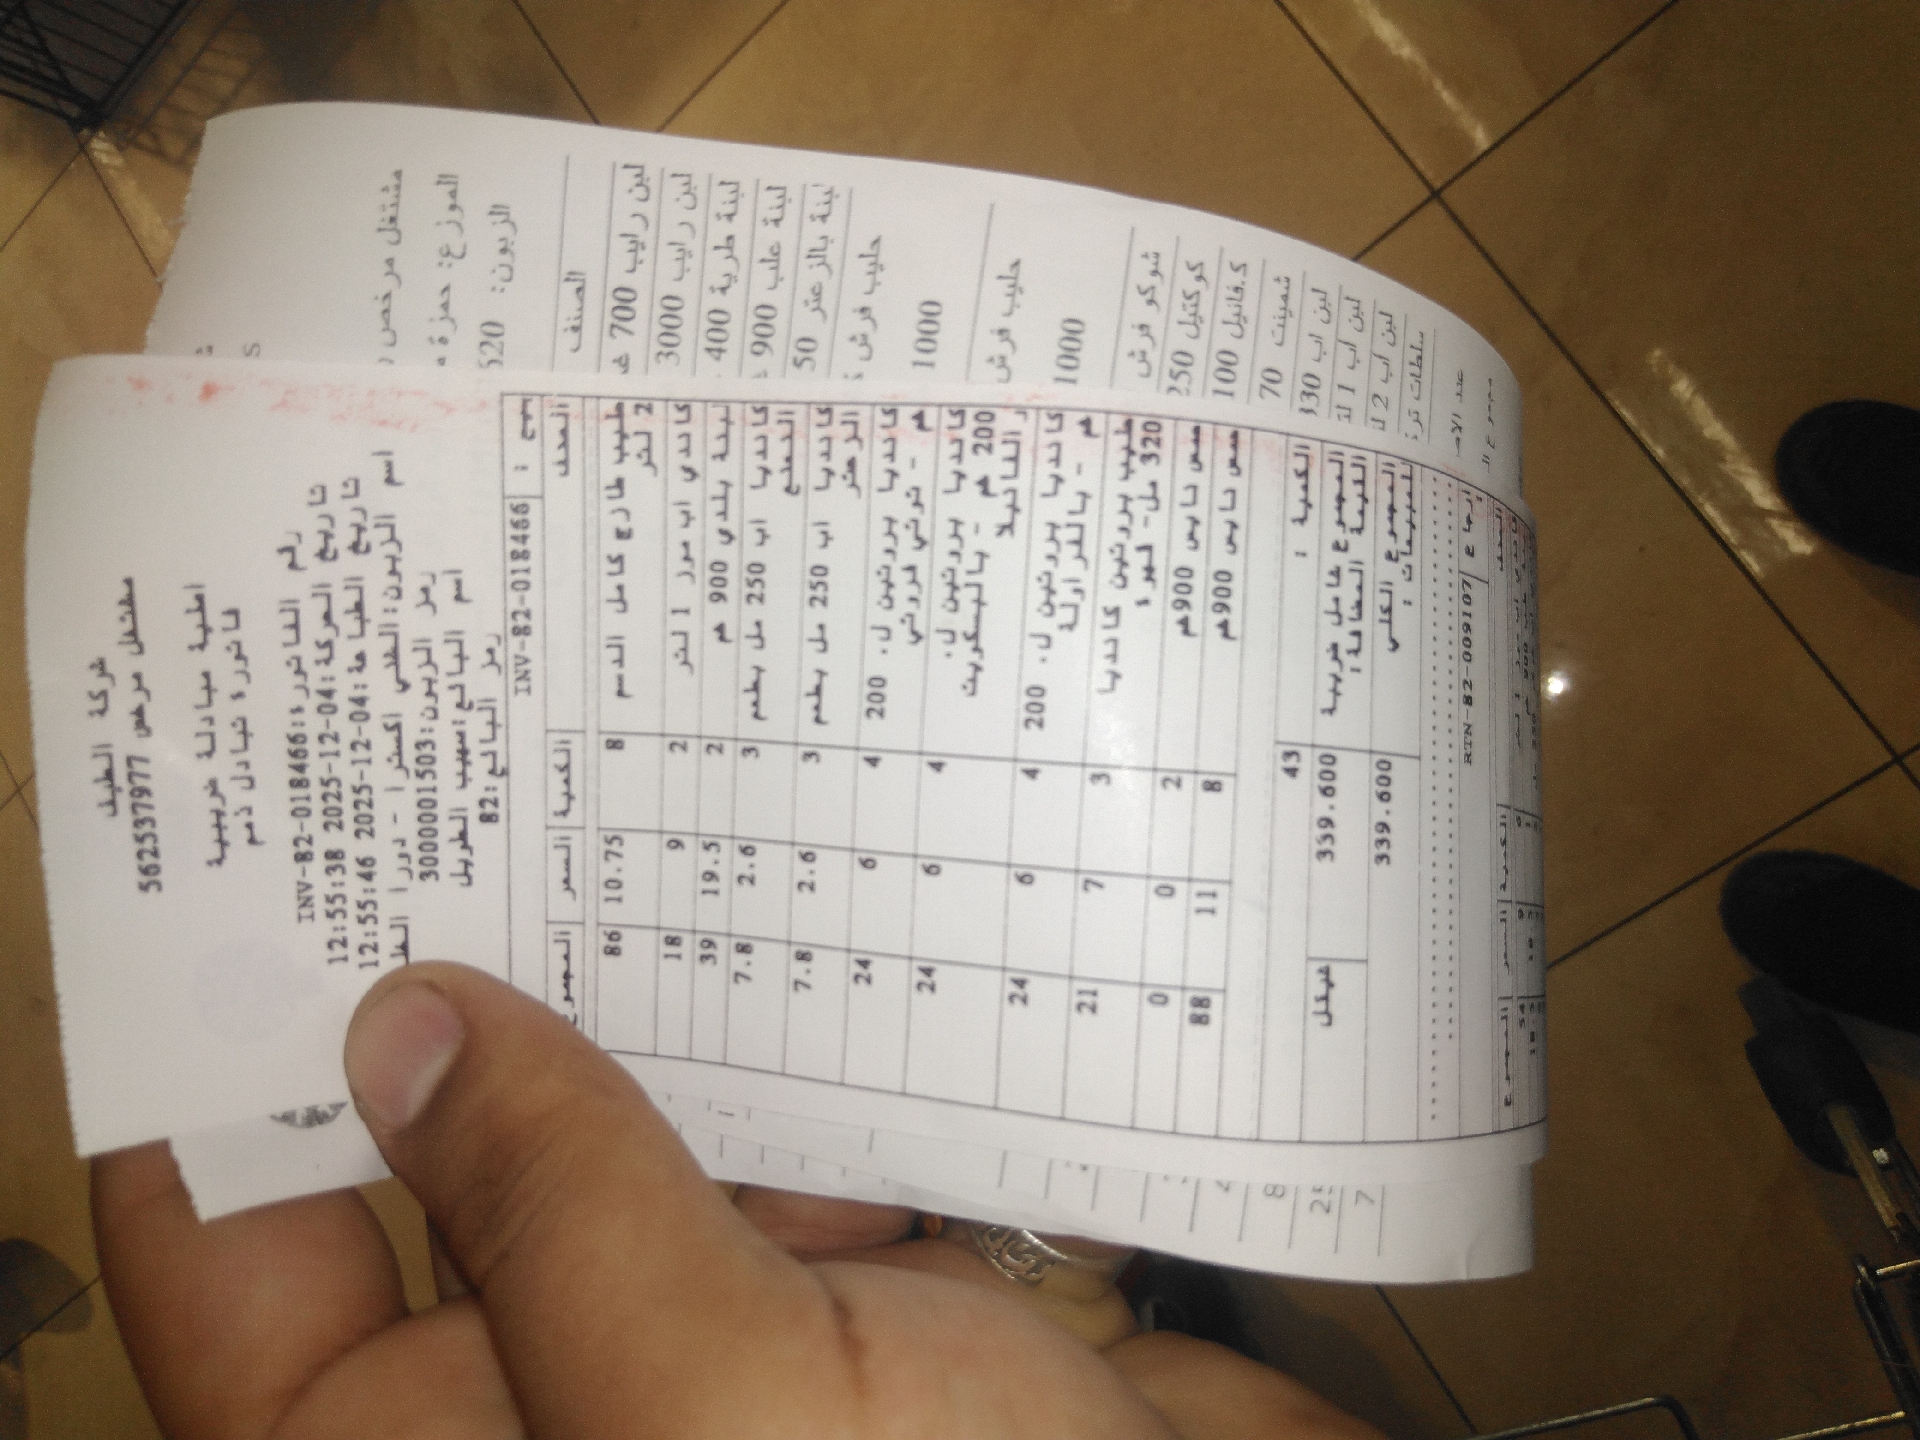 شركة الطيف
مشتغل مرخص 562537977
اصلية مبادلة ضريبية
فاتورة تبادل ذمم
رقم الفاتورة: INV-82-018466
تاريخ الحركة: 2025-12-04 12:55:38
تاريخ الطباعة: 2025-12-04 12:55:46
اسم الزبون: التقي اكسترا - دورا
رمز الزبون: 3000001503
اسم البائع: صهيب الطريل
رمز البائع: 82
بيع : INV-82-018466
الصنف الكمية السعر المجموع
حليب طازج كامل الدسم 2 لتر 8 10.75 86
كاندي اب موز 1 لتر 2 9 18
لبنة بلدي 900 غم 2 19.5 39
كانديا اب 250 مل بطعم 3 2.6 7.8
كانديا اب 250 مل بطعم 3 2.6 7.8
كانديا بروتين ل. 200 غم - توتي فروتي 4 6 24
كانديا بروتين ل. 200 غم - بالبسكويت و الفانيلا 4 6 24
كانديا بروتين ل. 200 غم - بالفراولة 4 6 24
حليب بروتين كانديا 320 مل- قهوة 3 7 21
مس نايس 900غم 2 0 0
مس نايس 900غم 8 11 88
الكمية : 43
المجموع شامل ضريبة القيمة المضافة: 339.600 شيكل
المجموع الكلي للمبيعات : 339.600
ارجاع RTN-82-009107
الصنف الكمية السعر المجموع
مشتغل مرخص
الموزع: حمزة
الزبون: 520
الصنف
لبن رايب 700
لبن رايب 3000
لبنة طرية 400
لبنة علب 900
لبنة بالزعتر 50
حليب فرش
1000
حليب فرش
1000
شوكو فرش
كوكتيل 250
ك.فانيل 100
شمينت 70
لبن اب 330
لبن اب 1 لت
لبن اب 2 ل
سلطات تر